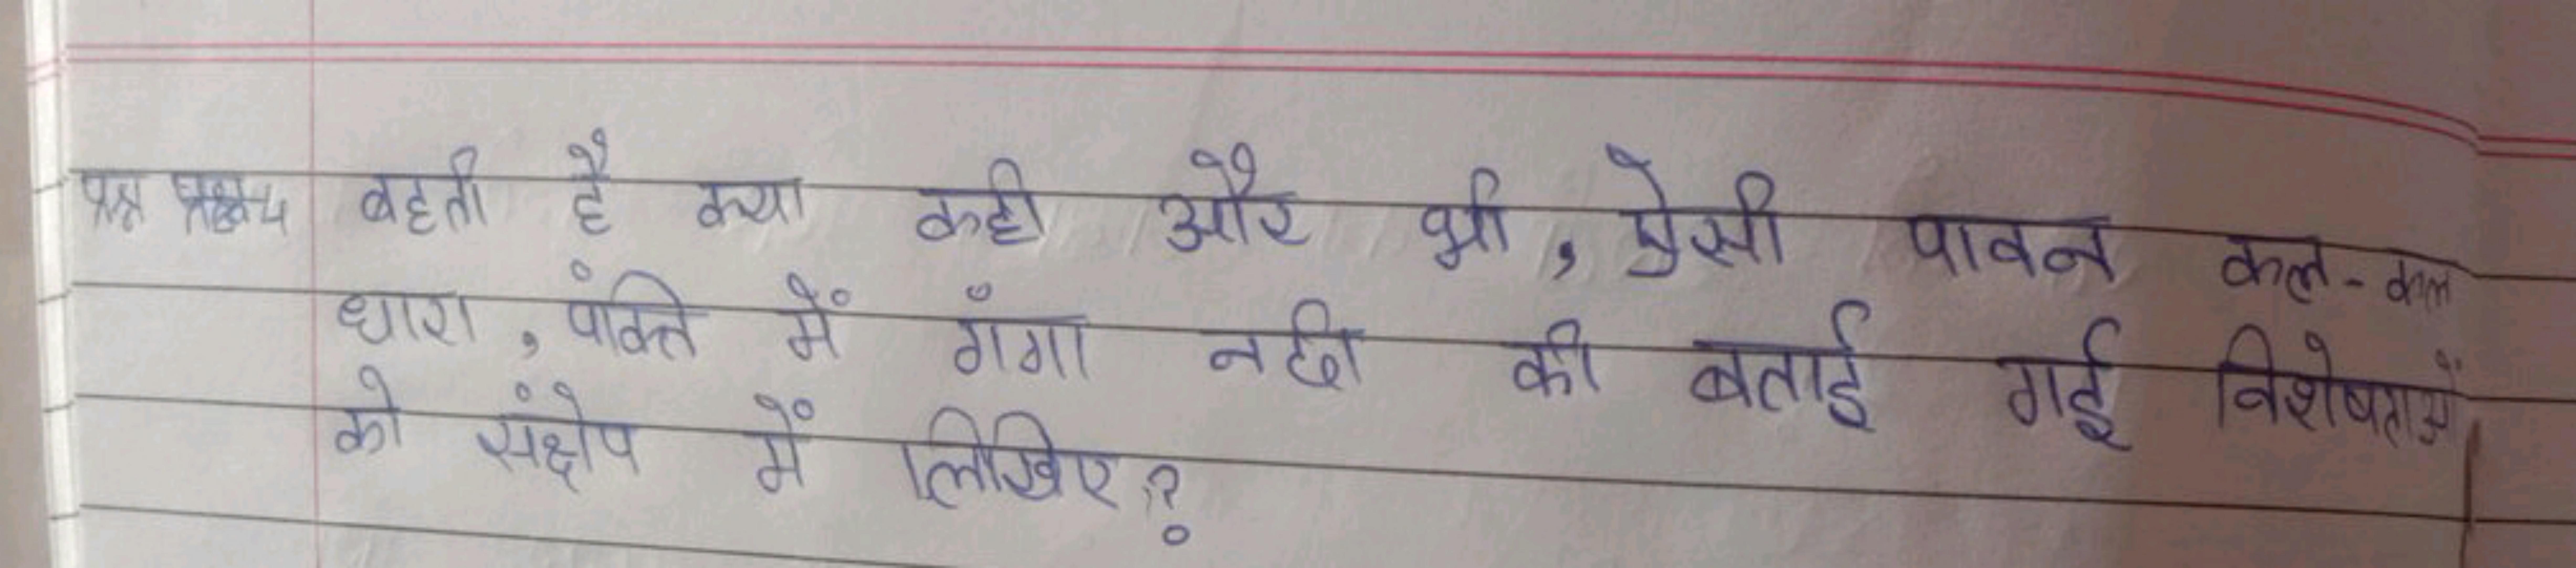 प्रश्न 4 बहती है क्या कही और भी, ऐसी पावन कल-कल
धारा, पंक्ति में गँगा नदी की बताई गई विशेषताओं
को संक्षेप में लिखिए?